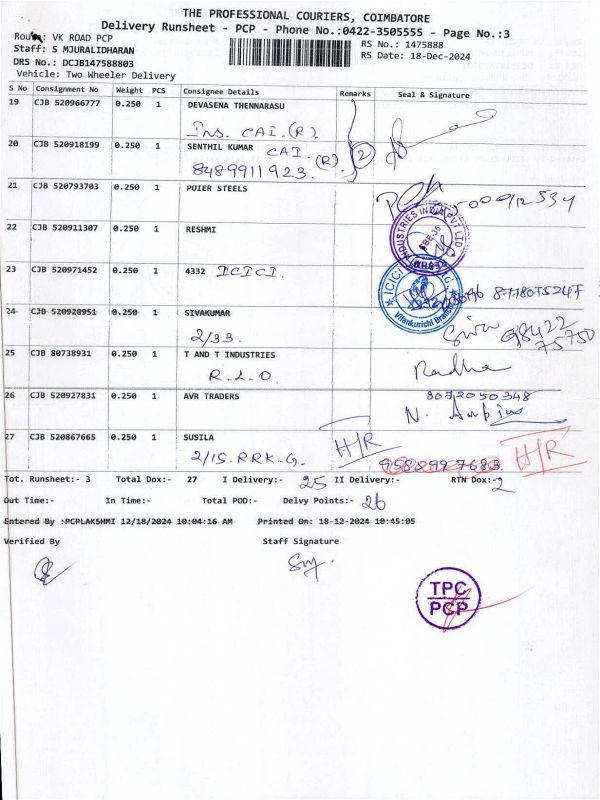 THE PROFESSIONAL COURIERS, COIMBATORE
Delivery Runsheet - PCP - Phone No.:0422-3505555 - Page No.:3
Route: VK ROAD PCP
RS No.: 1475888
Staff: S MJURALIDHARAN
RS Date: 18-Dec-2024
DRS No.: DCJB147588803
Vehicle: Two Wheeler Delivery
S No Consignment No Weight PCS Consignee Details Remarks Seal & Signature
19 CJB 520966777 0.250 1 DEVASENA THENNARASU
Ins. CAI.(R)
20 CJB 520918199 0.250 1 SENTHIL KUMAR CAI.
8489911923. (R) 2
21 CJB 520793703 0.250 1 POIER STEELS
22 CJB 520911307 0.250 1 RESHMI
INDUSTRIES INDIA PVT LTD
23 CJB 520971452 0.250 1 4332 ICICI.
ICICI
Vilankurichi Branch
24 CJB 520928951 0.250 1 SIVAKUMAR
2/33.
Siva 98422
75750
25 CJB 80738931 0.250 1 T AND T INDUSTRIES
R.L.O. Radha
26 CJB 520927831 0.250 1 AVR TRADERS 8072050348
27 CJB 520867665 0.250 1 SUSILA H/R H/R
2/15.RRK.G. 9588997683
Tot. Runsheet:- 3 Total Dox:- 27 I Delivery:- 25 II Delivery:- RTN Dox:-2
Out Time:- In Time:- Total POD:- Delvy Points:- 26
Entered By :PCPLAKSHMI 12/18/2024 10:04:16 AM Printed On: 18-12-2024 10:45:05
Verified By Staff Signature
TPC
PCP